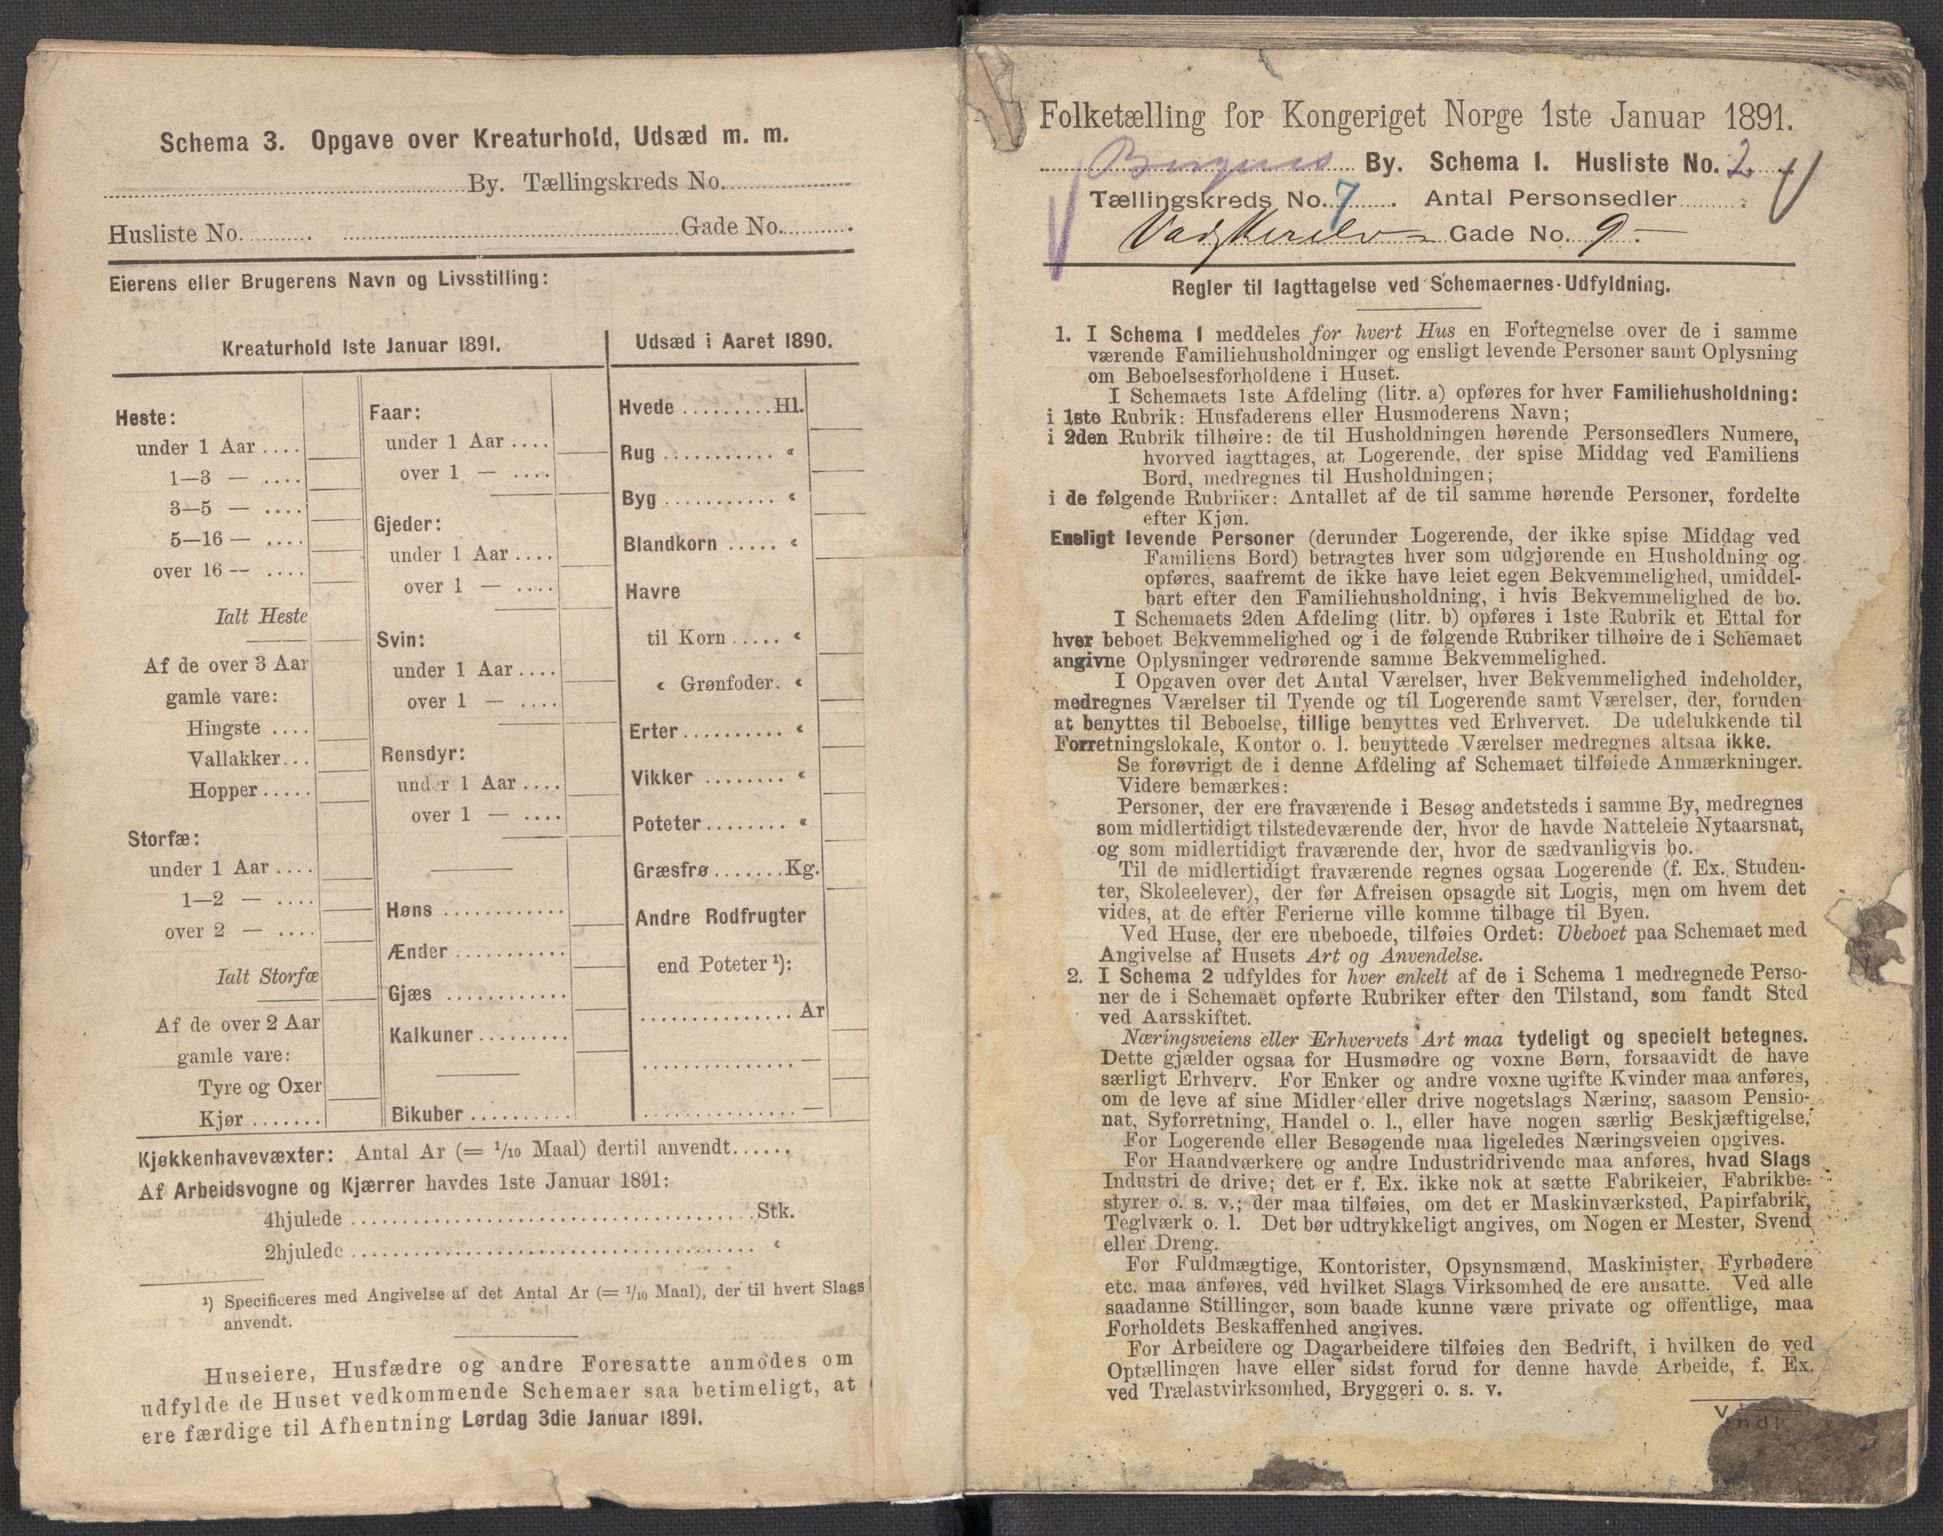 Schema 3. Opgave over Kreaturhold, Udsæd m. m.
By. Tællingskreds No.
Husliste No. Gade No.
Eierens eller Brugerens Navn og Livsstilling:
Kreaturhold 1ste Januar 1891.
Heste:
under 1 Aar ....
1—3 — ....
3—5 — ....
5—16 — ....
over 16 — ....
Ialt Heste
Af de over 3 Aar
gamle vare:
Hingste ....
Vallakker...
Hopper.....
Storfæ:
under 1 Aar ....
1—2 — ....
over 2 — ....
Ialt Storfæ
Af de over 2 Aar
gamle vare:
Tyre og Oxer
Kjør .......
Faar:
under 1 Aar ....
over 1 — ....
Gjeder:
under 1 Aar ....
over 1 — ....
Svin:
under 1 Aar ....
over 1 — ....
Rensdyr:
under 1 Aar ....
over 1 — ....
Høns ............
Ænder ...........
Gjæs ............
Kalkuner.........
Bikuber ..........
Udsæd i Aaret 1890.
Hvede .........Hl.
Rug ........... «
Byg ........... «
Blandkorn ..... «
Havre
til Korn ..... «
« Grønfoder. «
Erter.......... «
Vikker ........ «
Poteter........ «
Græsfrø.......Kg.
Andre Rodfrugter
end Poteter ¹):
............... Ar
............... —
............... —
Kjøkkenhavevæxter: Antal Ar (= 1/10 Maal) dertil anvendt......
Af Arbeidsvogne og Kjærrer havdes 1ste Januar 1891:
4hjulede ........................................Stk.
2hjulede ........................................ «
¹) Specificeres med Angivelse af det Antal Ar (= 1/10 Maal), der til hvert Slags
anvendt.
Huseiere, Husfædre og andre Foresatte anmodes om
udfylde de Huset vedkommende Schemaer saa betimeligt, at
ere færdige til Afhentning Lørdag 3die Januar 1891.
Folketælling for Kongeriget Norge 1ste Januar 1891.
Bergens By. Schema 1. Husliste No. 2
Tællingskreds No. 7. Antal Personsedler
Gade No. 9-
Regler til Iagttagelse ved Schemaernes Udfyldning.
1. I Schema 1 meddeles for hvert Hus en Fortegnelse over de i samme
værende Familiehusholdninger og ensligt levende Personer samt Oplysning
om Beboelsesforholdene i Huset.
I Schemaets 1ste Afdeling (litr. a) opføres for hver Familiehusholdning:
i 1ste Rubrik: Husfaderens eller Husmoderens Navn;
i 2den Rubrik tilhøire: de til Husholdningen hørende Personsedlers Numere,
hvorved iagttages, at Logerende, der spise Middag ved Familiens
Bord, medregnes til Husholdningen;
i de følgende Rubriker: Antallet af de til samme hørende Personer, fordelte
efter Kjøn.
Ensligt levende Personer (derunder Logerende, der ikke spise Middag ved
Familiens Bord) betragtes hver som udgjørende en Husholdning og
opføres, saafremt de ikke have leiet egen Bekvemmelighed, umiddel-
bart efter den Familiehusholdning, i hvis Bekvemmelighed de bo.
I Schemaets 2den Afdeling (litr. b) opføres i 1ste Rubrik et Ettal for
hver beboet Bekvemmelighed og i de følgende Rubriker tilhøire de i Schemaet
angivne Oplysninger vedrørende samme Bekvemmelighed.
I Opgaven over det Antal Værelser, hver Bekvemmelighed indeholder,
medregnes Værelser til Tyende og til Logerende samt Værelser, der, foruden
at benyttes til Beboelse, tillige benyttes ved Erhvervet. De udelukkende til
Forretningslokale, Kontor o. l. benyttede Værelser medregnes altsaa ikke.
Se forøvrigt de i denne Afdeling af Schemaet tilføiede Anmærkninger.
Videre bemærkes:
Personer, der ere fraværende i Besøg andetsteds i samme By, medregnes
som midlertidigt tilstedeværende der, hvor de havde Natteleie Nytaarsnat,
og som midlertidigt fraværende der, hvor de sædvanligvis bo.
Til de midlertidigt fraværende regnes ogsaa Logerende (f. Ex. Studen-
ter, Skoleelever), der før Afreisen opsagde sit Logis, men om hvem det
vides, at de efter Ferierne ville komme tilbage til Byen.
Ved Huse, der ere ubeboede, tilføies Ordet: Ubeboet paa Schemaet med
Angivelse af Husets Art og Anvendelse.
2. I Schema 2 udfyldes for hver enkelt af de i Schema 1 medregnede Perso-
ner de i Schemaet opførte Rubriker efter den Tilstand, som fandt Sted
ved Aarsskiftet.
Næringsveiens eller Erhvervets Art maa tydeligt og specielt betegnes.
Dette gjælder ogsaa for Husmødre og voxne Børn, forsaavidt de have
særligt Erhverv. For Enker og andre voxne ugifte Kvinder maa anføres,
om de leve af sine Midler eller drive nogetslags Næring, saasom Pensio-
nat, Syforretning, Handel o. l., eller have nogen særlig Beskjæftigelse.
For Logerende eller Besøgende maa ligeledes Næringsveien opgives.
For Haandværkere og andre Industridrivende maa anføres, hvad Slags
Industri de drive; det er f. Ex. ikke nok at sætte Fabrikeier, Fabrikbe-
styrer o. s. v.; der maa tilføies, om det er Maskinværksted, Papirfabrik,
Teglværk o. l. Det bør udtrykkeligt angives, om Nogen er Mester, Svend
eller Dreng.
For Fuldmægtige, Kontorister, Opsynsmænd, Maskinister, Fyrbødere
etc. maa anføres, ved hvilket Slags Virksomhed de ere ansatte. Ved alle
saadanne Stillinger, som baade kunne være private og offentlige, maa
Forholdets Beskaffenhed angives.
For Arbeidere og Dagarbeidere tilføies den Bedrift, i hvilken de ved
Optællingen have eller sidst forud for denne havde Arbeide, f. Ex.
ved Trælastvirksomhed, Bryggeri o. s. v.